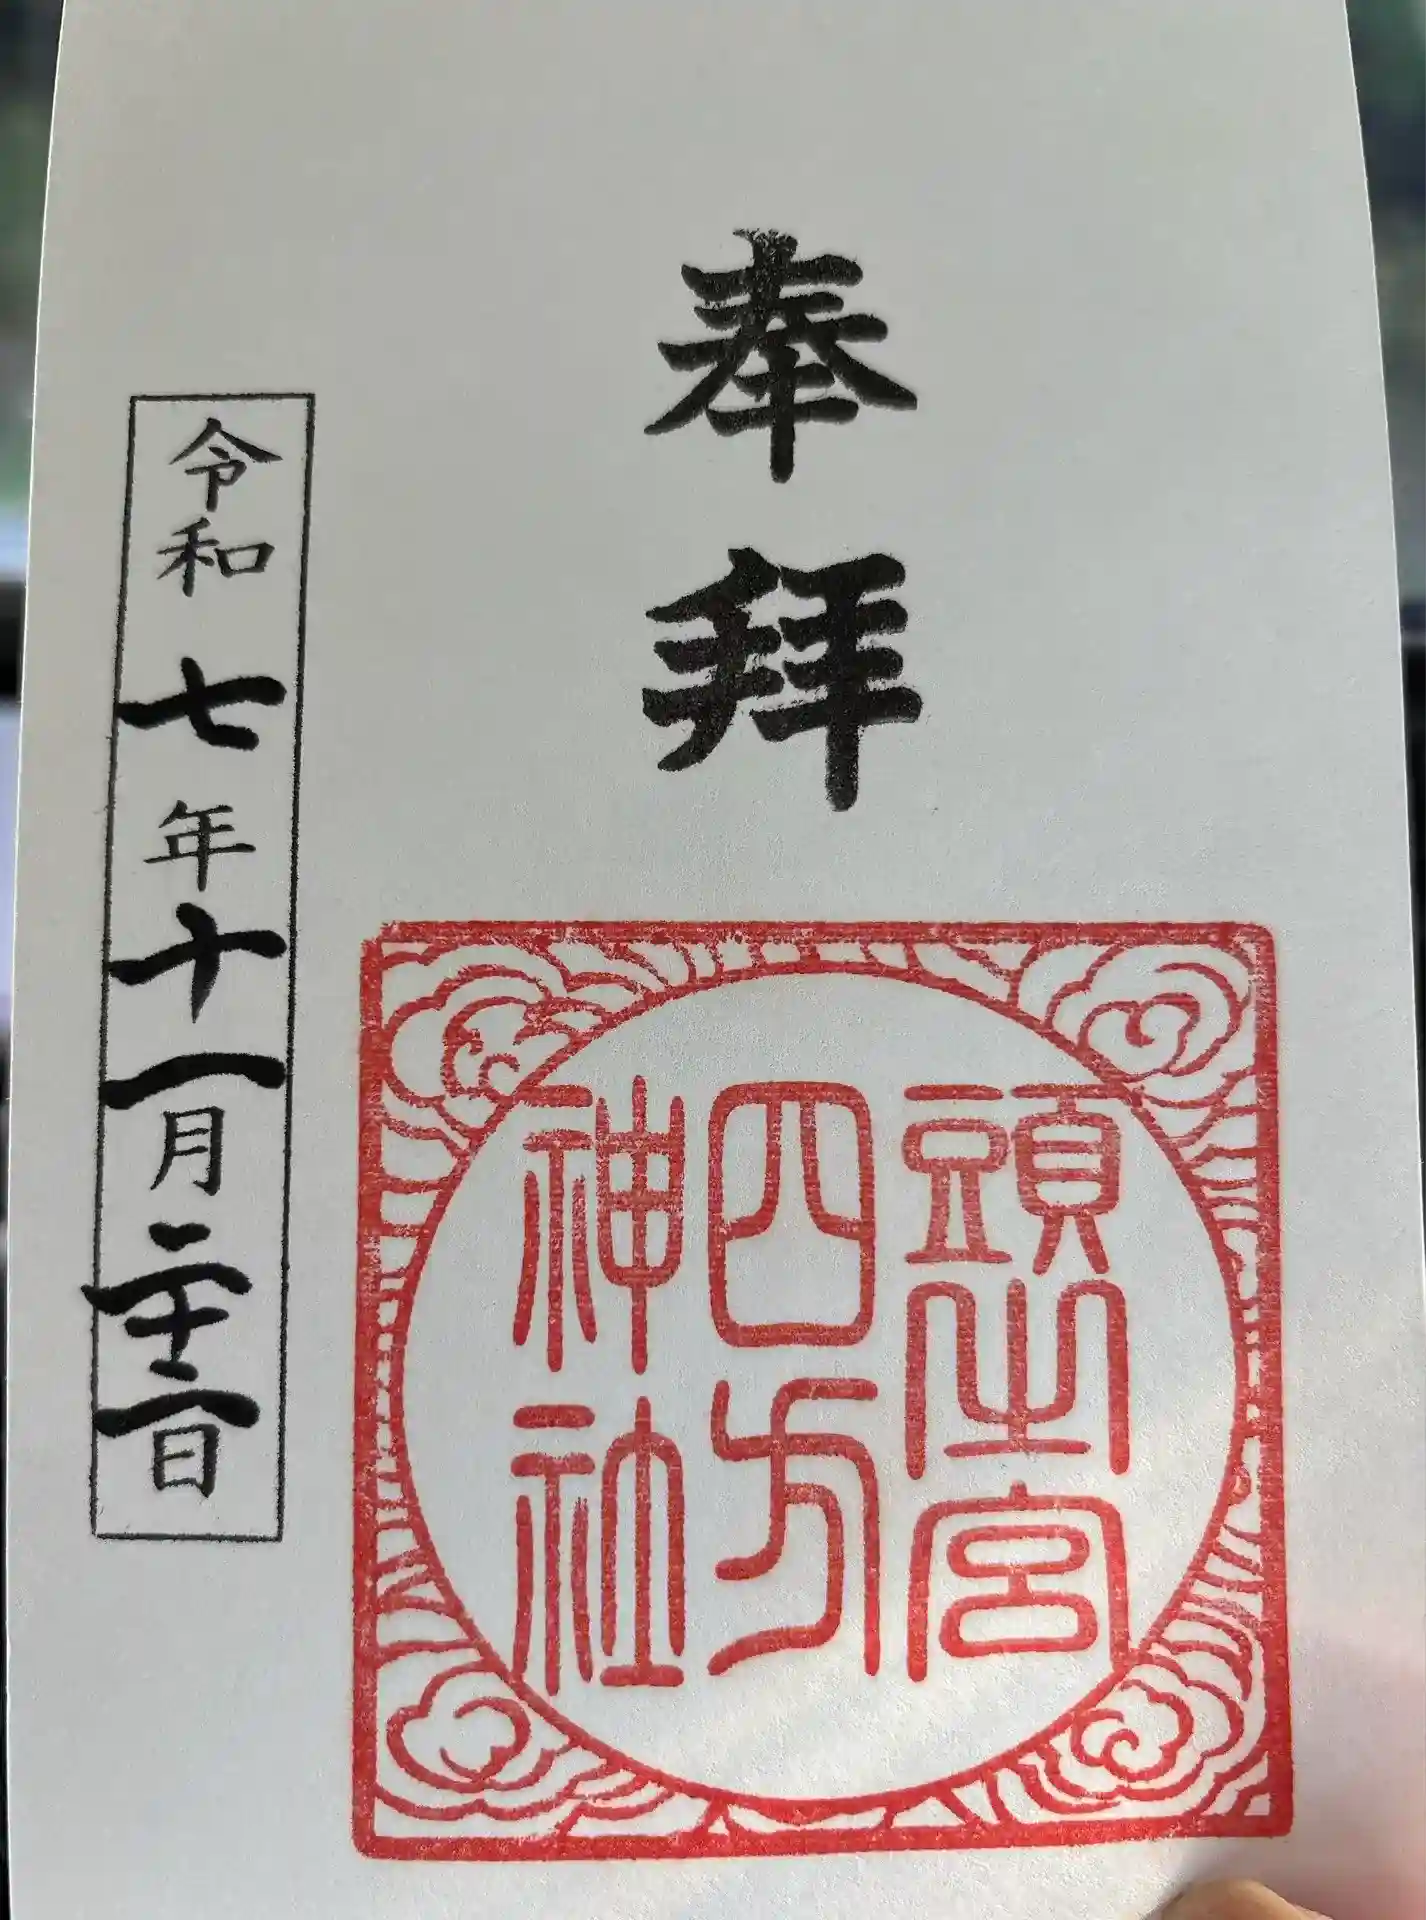 奉拝
頭之宮
四方
神社
令和七年十一月二十三日